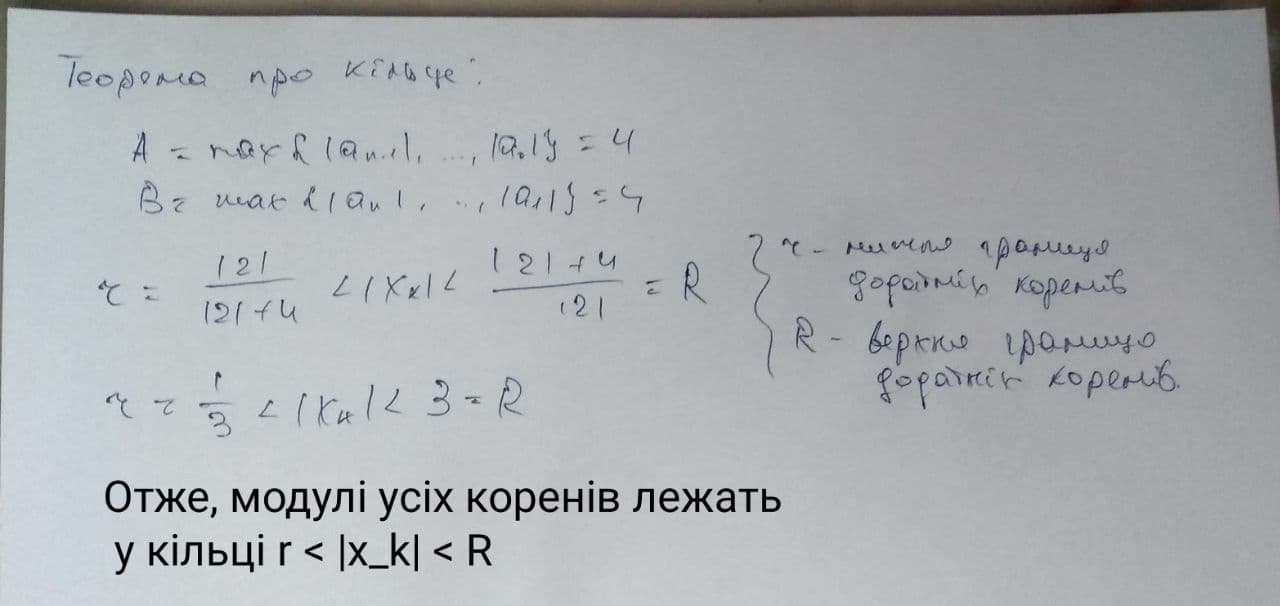 Теорема про кільце:
A = max{|a_{n-1}|, ..., |a_0|} = 4
B = max{|a_n|, ..., |a_1|} = 4
r = |2| / (|2|+4) < |x_k| < (|2|+4) / |2| = R
r - нижня границя
додатніх коренів
R - верхня границя
додатніх коренів.
r = 1/3 < |x_k| < 3 = R
Отже, модулі усіх коренів лежать
у кільці r < |x_k| < R